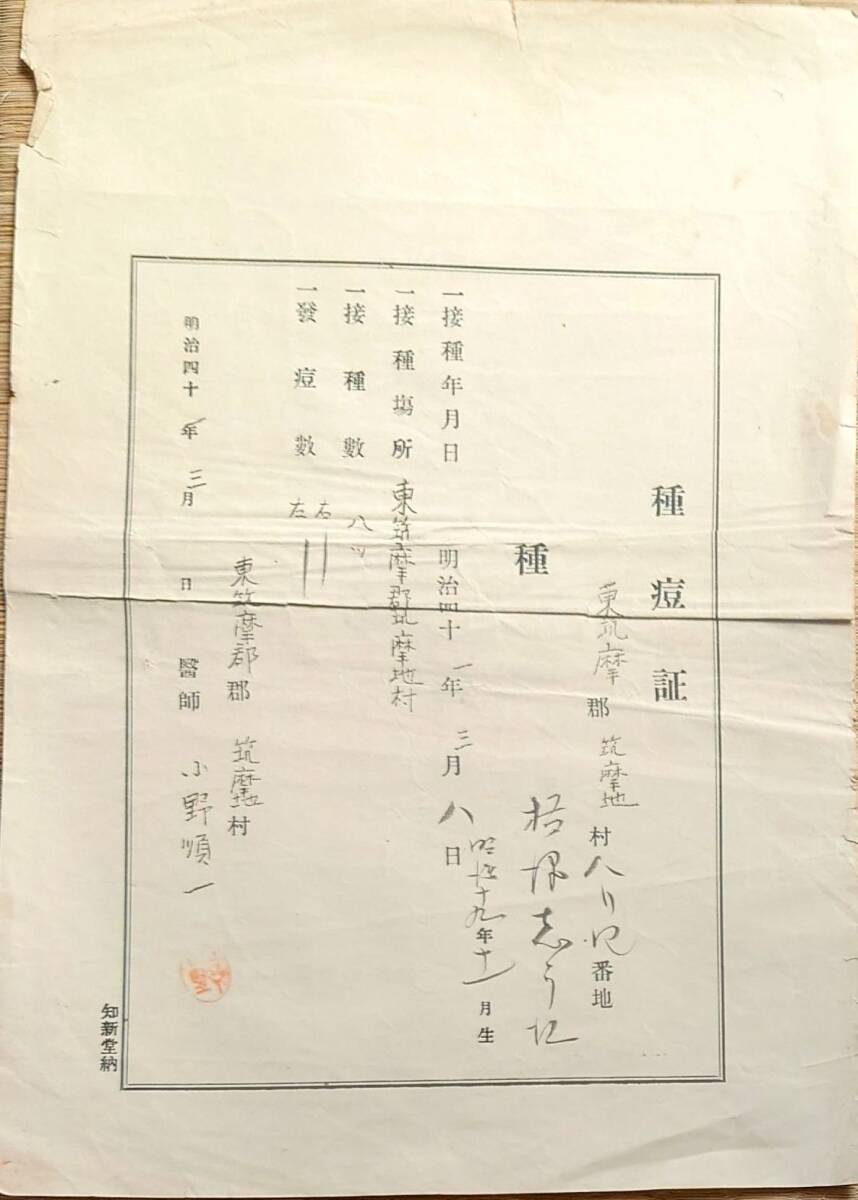 種痘証
東筑摩郡筑摩地村八百四番地
種
年十一月生
一接種年月日 明治四十一年三月八日
一接種塲所 東筑摩郡筑摩地村
一接種數 八ツ
一發痘數 右 左
明治四十一年三月 日
東筑摩郡郡筑摩地村
醫師 小野順一
知新堂納